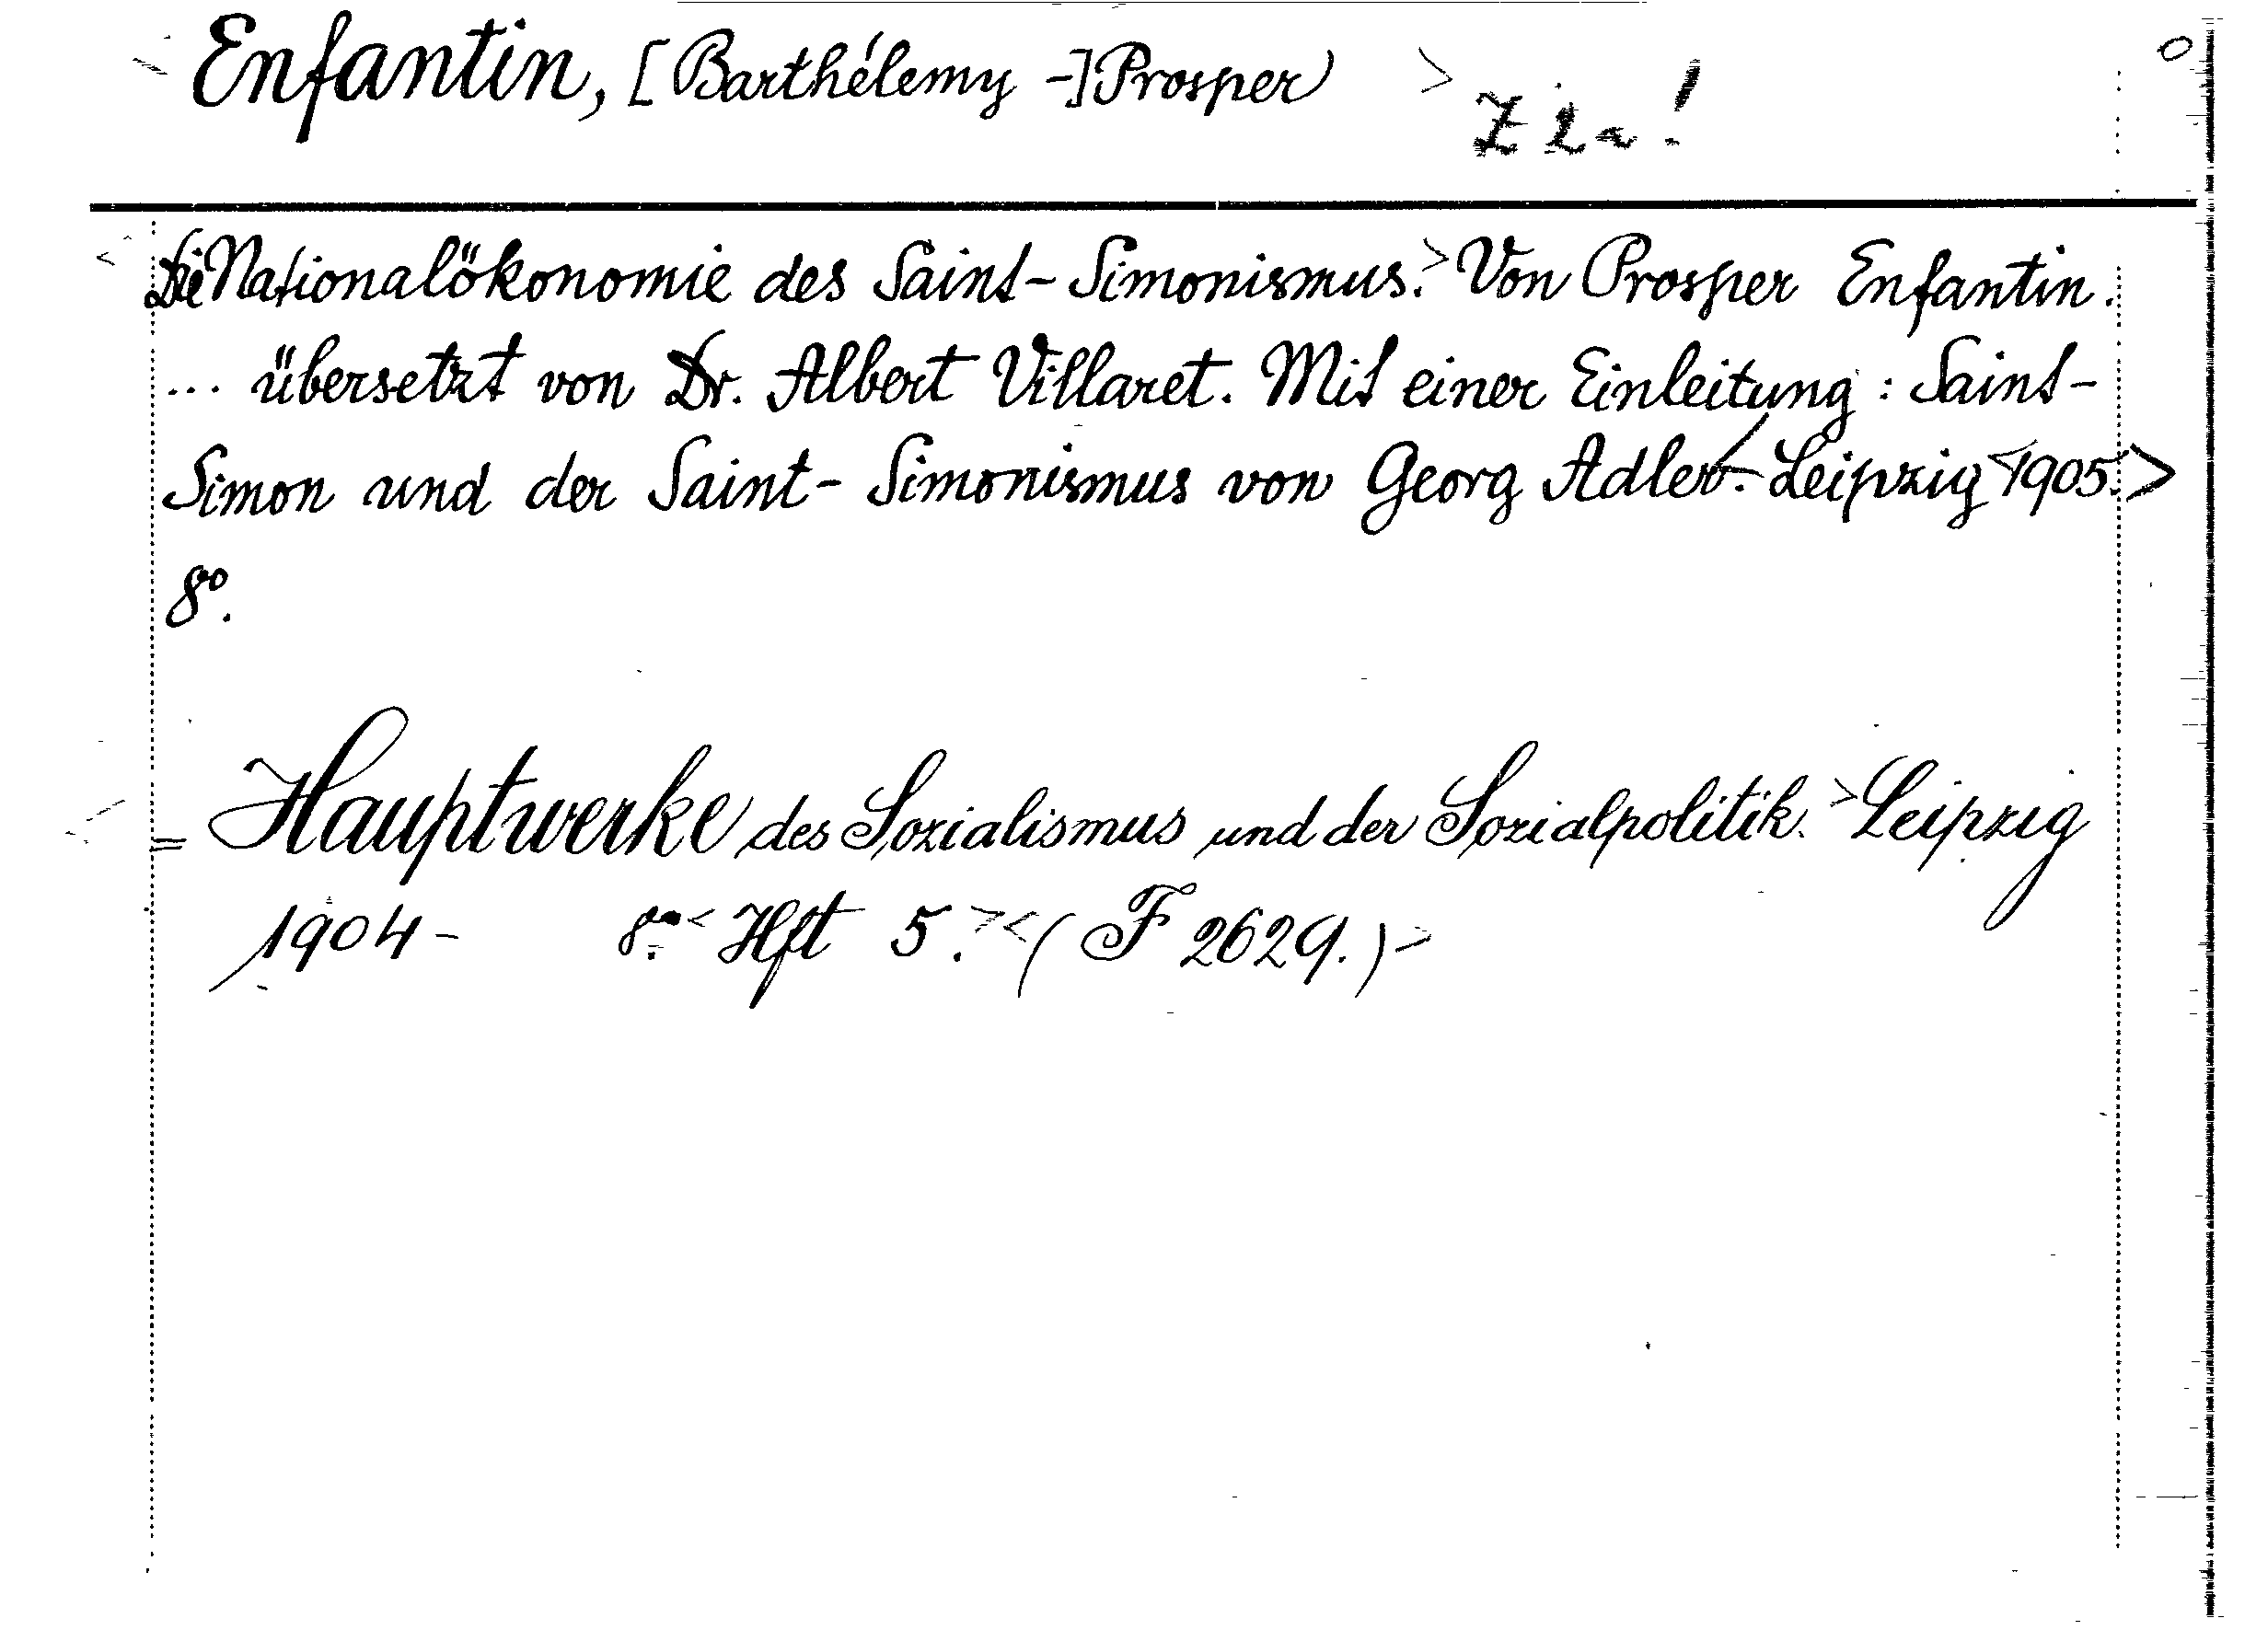 Enfantin, [Barthélemy -] Prosper >
Z 2a!
Die Nationalökonomie des Saint-Simonismus.> Von Prosper Enfantin.
... übersetzt von Dr. Albert Villaret. Mit einer Einleitung: Saint-
Simon und der Saint-Simonismus von Georg Adler. - Leipzig <1905.>
8°.
= Hauptwerke des Sozialismus und der Sozialpolitik.> Leipzig
1904- 8.° < Hft 5. > < (F 2629.) >